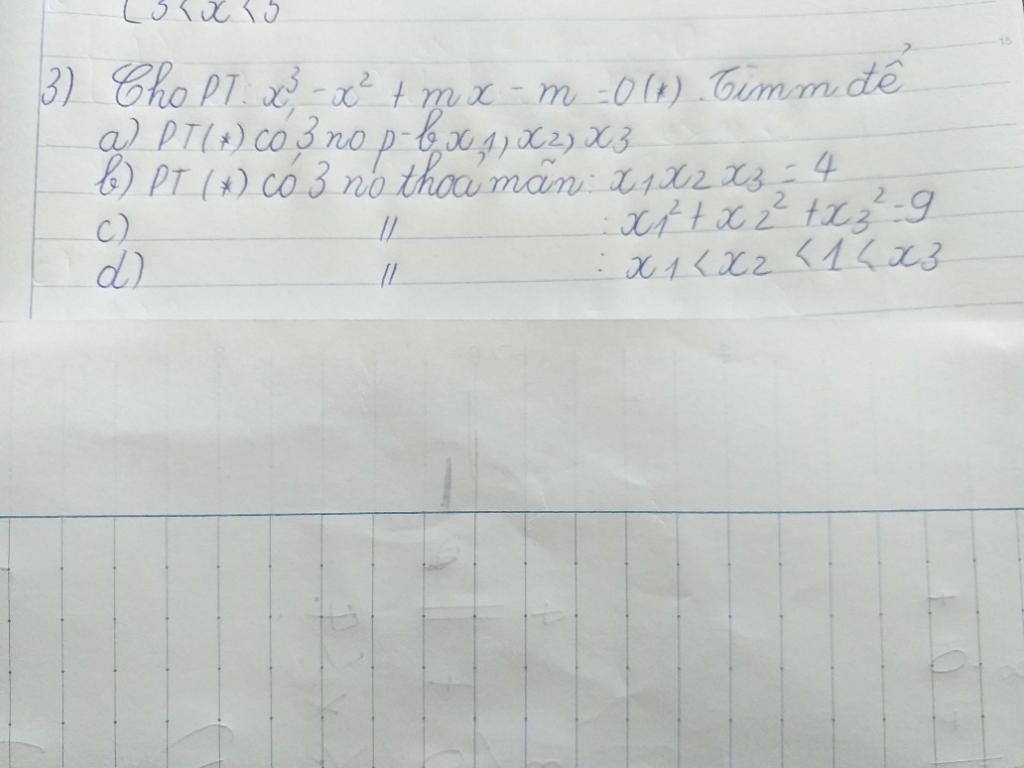 3<x<5
3) Cho PT: x³ - x² + mx - m = 0 (*). Tìm m để
a) PT(*) có 3 no p-b x1, x2, x3
b) PT (*) có 3 no thoả mãn: x1x2x3 = 4
c) // : x1² + x2² + x3² = 9
d) // : x1 < x2 < 1 < x3